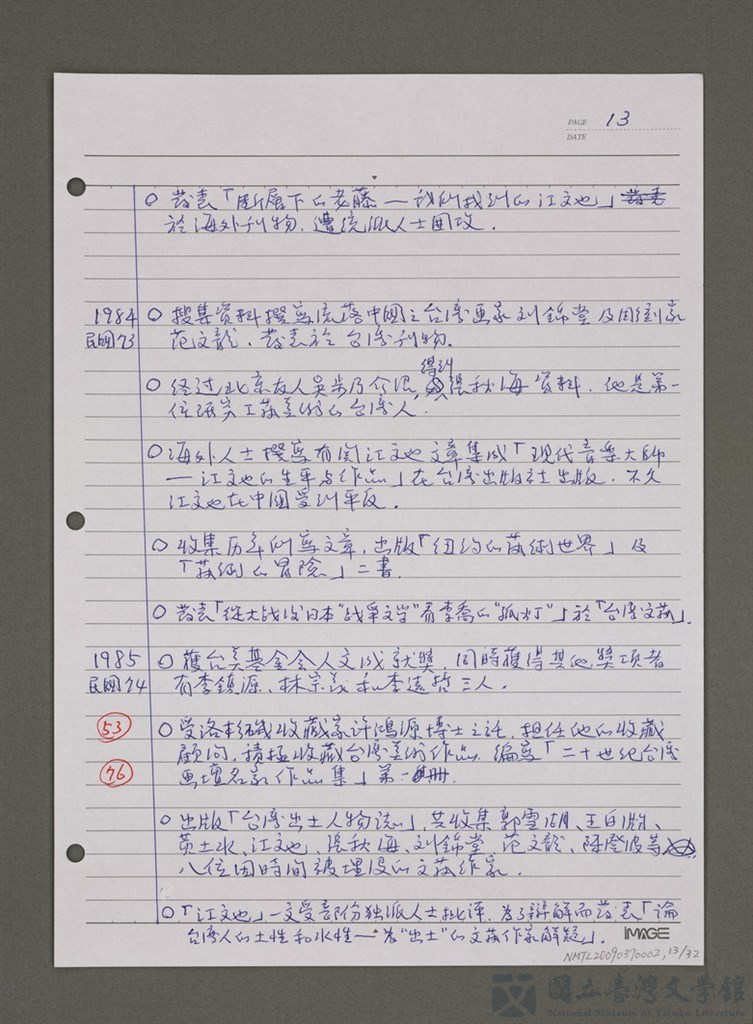 PAGE 13
DATE
○ 發表「斷層下的老藤—我所找到的江文也」
於海外刊物，遭統派人士圍攻．
1984 ○ 搜集資料撰寫流落中國之台湾画家刘錦堂及
民國73 范文龍，發表於台湾刊物．
○ 经过北京友人吳 介 得到張秋海資料．他是第一
位 工藝美術的台湾人．
○ 海外人士撰寫有関江文也文章集成「現代音楽大師
—江文也的生平与作品」在台湾出版社出版．不久
江文也在中國受到平反．
○ 收集历年所寫文章，出版「紐约的藝術世界」及
「藝術的冒險」二書．
○ 發表「從大战後日本“战爭文学”看李喬的“孤灯”」於「台湾文藝」．
1985 ○ 獲台美基金会人文成就獎．同時獲得其他獎項者
民國74 有李鎮源、林宗義和李遠哲三人．
53 ○ 受洛杉磯收藏家许鴻源博士之託，担任他的收藏
顧问，積極收藏台湾美術作品．編寫「二十世纪台湾
76 画壇名家作品集」第一冊．
○ 出版「台湾出土人物誌」，共收集郭雪湖、王白淵、
黄土水、江文也、張秋海、刘錦堂、范文龍、陳澄波等
八位因時间被埋没的文藝作家．
○「江文也」一文受部份独派人士批评，為了辯解而發表「論
台湾人的土性和水性—為“出土”的文藝作家解疑」．
iMAGE
NMTL20090370002, 13/32
國立臺灣文學館
National Museum of Taiwan Literature